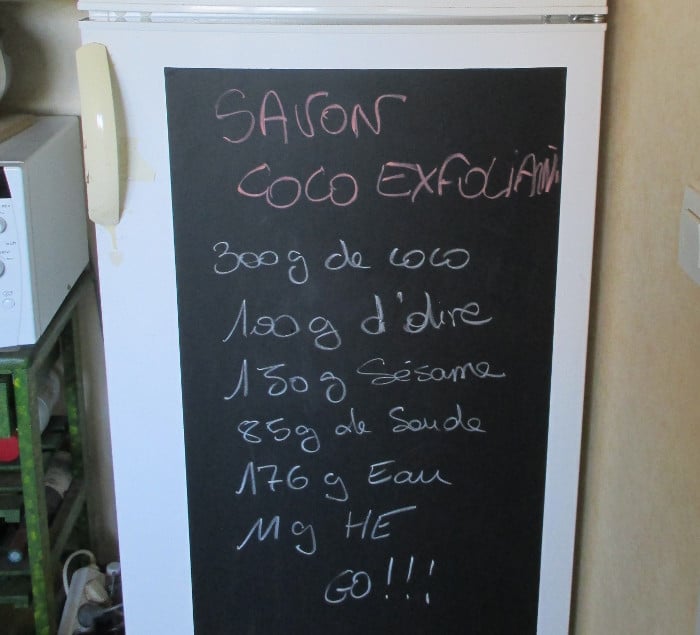 SAVON
COCO EXFOLIANT
300g de coco
100g d'olive
150g Sésame
85g de Soude
176g Eau
11g HE
GO!!!